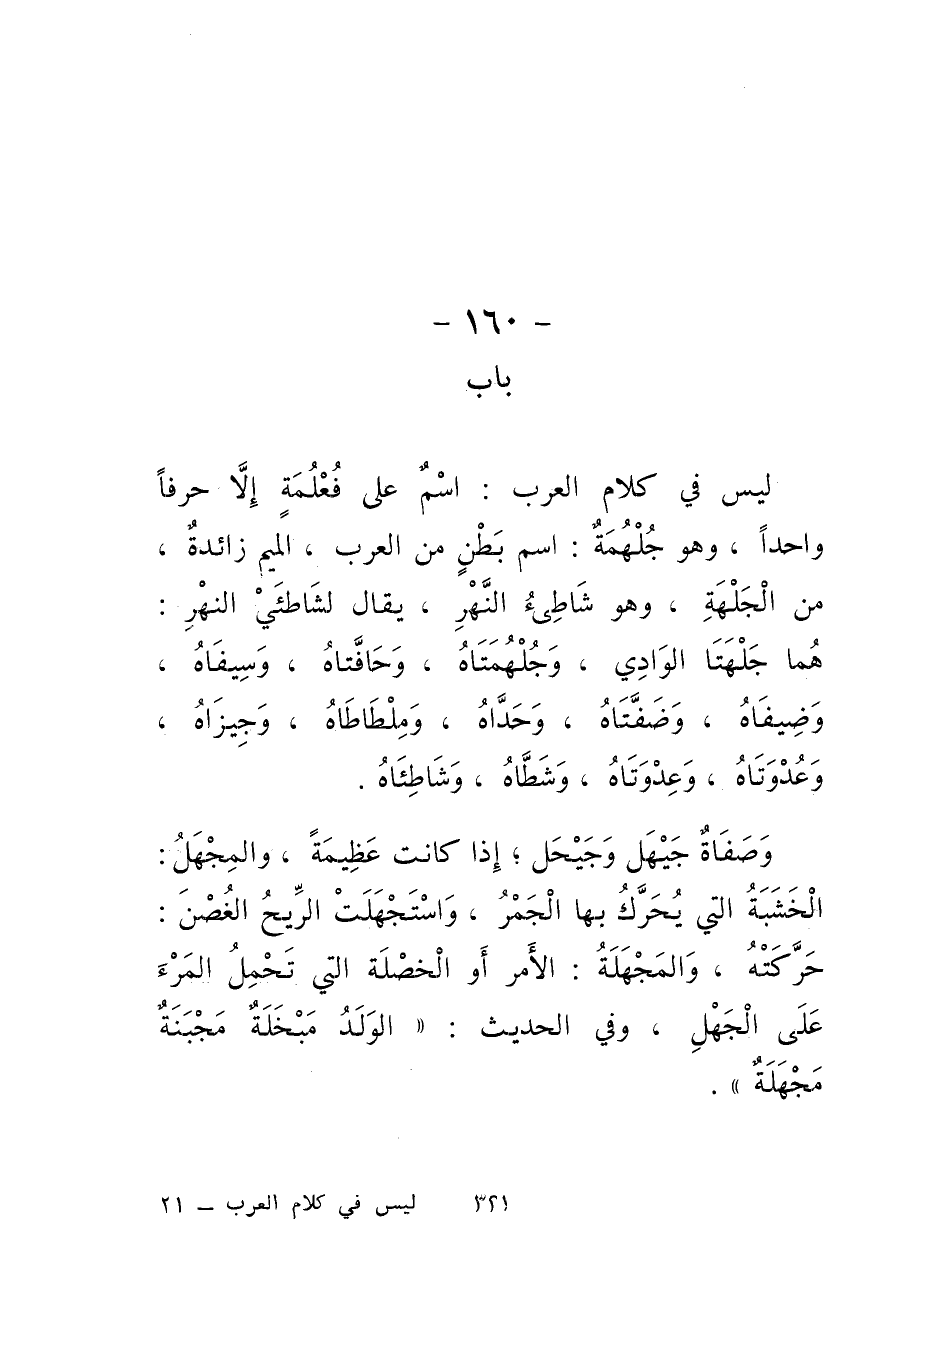 - ١٦٠ -
باب
ليس في كلام العرب : اسْمٌ على فُعْلُمَةٍ إِلَّا حرفاً
واحداً ، وهو جُلْهُمَةٌ : اسم بَطْنٍ من العرب ، الميم زائدةٌ ،
من الْجَلْهَةِ ، وهو شَاطِىءُ النَّهْرِ ، يقال لشَاطئَيْ النهْرِ :
هُما جَلْهَتَا الوَادِي ، وَجُلْهُمَتَاهُ ، وَحَافَّتاهُ ، وَسِيفَاهُ ،
وَضِيفَاهُ ، وَضَفَّتَاهُ ، وَحَدَّاهُ ، وَمِلْطَاطَاهُ ، وَجِيزَاهُ ،
وَعُدْوَتَاهُ ، وَعِدْوَتَاهُ ، وَشَطَّاهُ ، وَشَاطِئَاهُ .
وَصَفَاةٌ جَيْهَل وَجَيْحَل ؛ إِذا كانت عَظِيمَةً ، والمِجْهَلُ :
الْخَشَبَةُ التي يُحَرَّكُ بها الْجَمْرُ ، وَاسْتَجْهَلَتْ الرِّيحُ الغُصْنَ :
حَرَّكَتْهُ ، وَالمَجْهَلَةُ : الأَمر أَو الْخصْلَة التي تَحْمِلُ المَرْءَ
عَلَى الْجَهْلِ ، وفي الحديث : « الوَلَدُ مَبْخَلَةٌ مَجْبَنَةٌ
مَجْهَلَةٌ » .
٣٢١ ليس في كلام العرب ــ ٢١